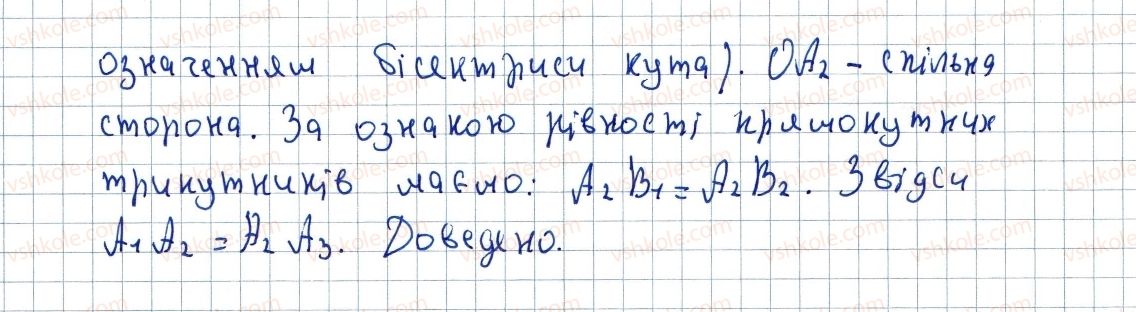 означенням бісектриси кута). OA₂ - спільна
сторона. За ознакою рівності прямокутних
трикутників маємо: A₂B₁ = A₂B₂. Звідси
A₁A₂ = A₂A₃. Доведено.